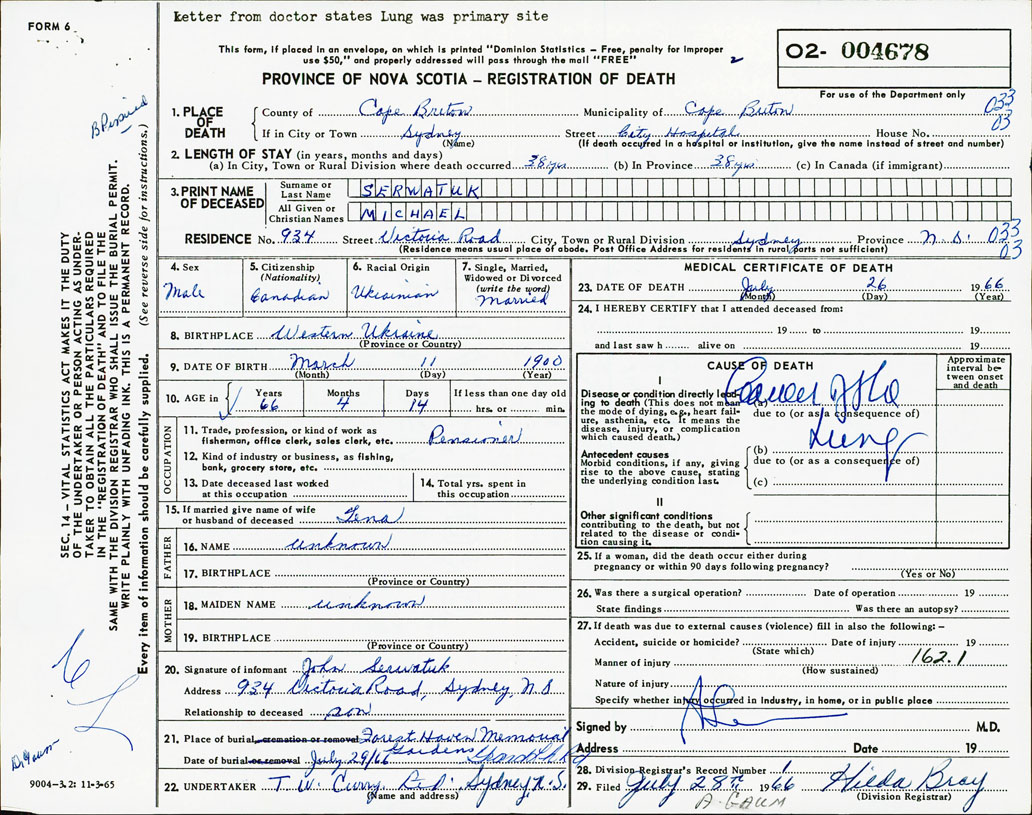 FORM 6
Letter from doctor states Lung was primary site
This form, if placed in an envelope, on which is printed "Dominion Statistics – Free, penalty for improper
use $50," and properly addressed will pass through the mail "FREE"
PROVINCE OF NOVA SCOTIA – REGISTRATION OF DEATH
02- 004678
For use of the Department only
1. PLACE OF DEATH County of Cape Breton Municipality of Cape Breton 033
If in City or Town Sydney Street City Hospital House No. 03
(Name) (If death occurred in a hospital or institution, give the name instead of street and number)
2. LENGTH OF STAY (in years, months and days)
(a) In City, Town or Rural Division where death occurred 38 yrs (b) In Province 38 yrs (c) In Canada (if immigrant)
3. PRINT NAME OF DECEASED Surname or Last Name SERWATUK
All Given or Christian Names MICHAEL
RESIDENCE No. 934 Street Victoria Road City, Town or Rural Division Sydney Province N. S. 033
(Residence means usual place of abode. Post Office Address for residents in rural parts not sufficient) 03
4. Sex Male
5. Citizenship (Nationality) Canadian
6. Racial Origin Ukrainian
7. Single, Married, Widowed or Divorced (write the word) Married
8. BIRTHPLACE Western Ukraine
(Province or Country)
9. DATE OF BIRTH March 11 1900
(Month) (Day) (Year)
10. AGE in Years 66 Months 4 Days 14 If less than one day old hrs. or min.
OCCUPATION
11. Trade, profession, or kind of work as
fisherman, office clerk, sales clerk, etc. Pensioner
12. Kind of industry or business, as fishing,
bank, grocery store, etc.
13. Date deceased last worked
at this occupation
14. Total yrs. spent in
this occupation
15. If married give name of wife
or husband of deceased Lena
FATHER
16. NAME unknown
17. BIRTHPLACE
(Province or Country)
MOTHER
18. MAIDEN NAME unknown
19. BIRTHPLACE
(Province or Country)
20. Signature of informant John Serwatuk
Address 934 Victoria Road, Sydney N S
Relationship to deceased son
21. Place of burial, cremation or removal Forest Haven Memorial
Gardens
Date of burial or removal July 29/66
22. UNDERTAKER T. W. Curry Sydney, N.S.
(Name and address)
MEDICAL CERTIFICATE OF DEATH
23. DATE OF DEATH July 26 1966
(Month) (Day) (Year)
24. I HEREBY CERTIFY that I attended deceased from:
19 to 19
and last saw h alive on 19
CAUSE OF DEATH
Approximate interval between onset and death
I
Disease or condition directly leading to death (This does not mean
the mode of dying, e.g., heart failure, asthenia, etc. It means the
disease, injury, or complication
which caused death.)
(a) Cancer of the
due to (or as a consequence of)
Lung
Antecedent causes
Morbid conditions, if any, giving
rise to the above cause, stating
the underlying condition last.
(b)
due to (or as a consequence of)
(c)
II
Other significant conditions
contributing to the death, but not
related to the disease or condition causing it.
25. If a woman, did the death occur either during
pregnancy or within 90 days following pregnancy?
(Yes or No)
26. Was there a surgical operation? Date of operation 19
State findings Was there an autopsy?
27. If death was due to external causes (violence) fill in also the following: –
Accident, suicide or homicide? Date of injury 19
(State which)
Manner of injury 162.1
(How sustained)
Nature of injury
Specify whether injury occurred in industry, in home, or in public place
Signed by M.D.
Address Date 19
28. Division Registrar's Record Number
29. Filed July 28th 1966 Hilda Bray
(Division Registrar)
A. GAUM
SEC. 14 – VITAL STATISTICS ACT MAKES IT THE DUTY
OF THE UNDERTAKER OR PERSON ACTING AS UNDER-
TAKER TO OBTAIN ALL THE PARTICULARS REQUIRED
IN THE "REGISTRATION OF DEATH" AND TO FILE THE
SAME WITH THE DIVISION REGISTRAR WHO SHALL ISSUE THE BURIAL PERMIT.
WRITE PLAINLY WITH UNFADING INK. THIS IS A PERMANENT RECORD.
Every item of information should be carefully supplied. (See reverse side for instructions.)
Dr. Gaum
9004-3.2: 11-3-65